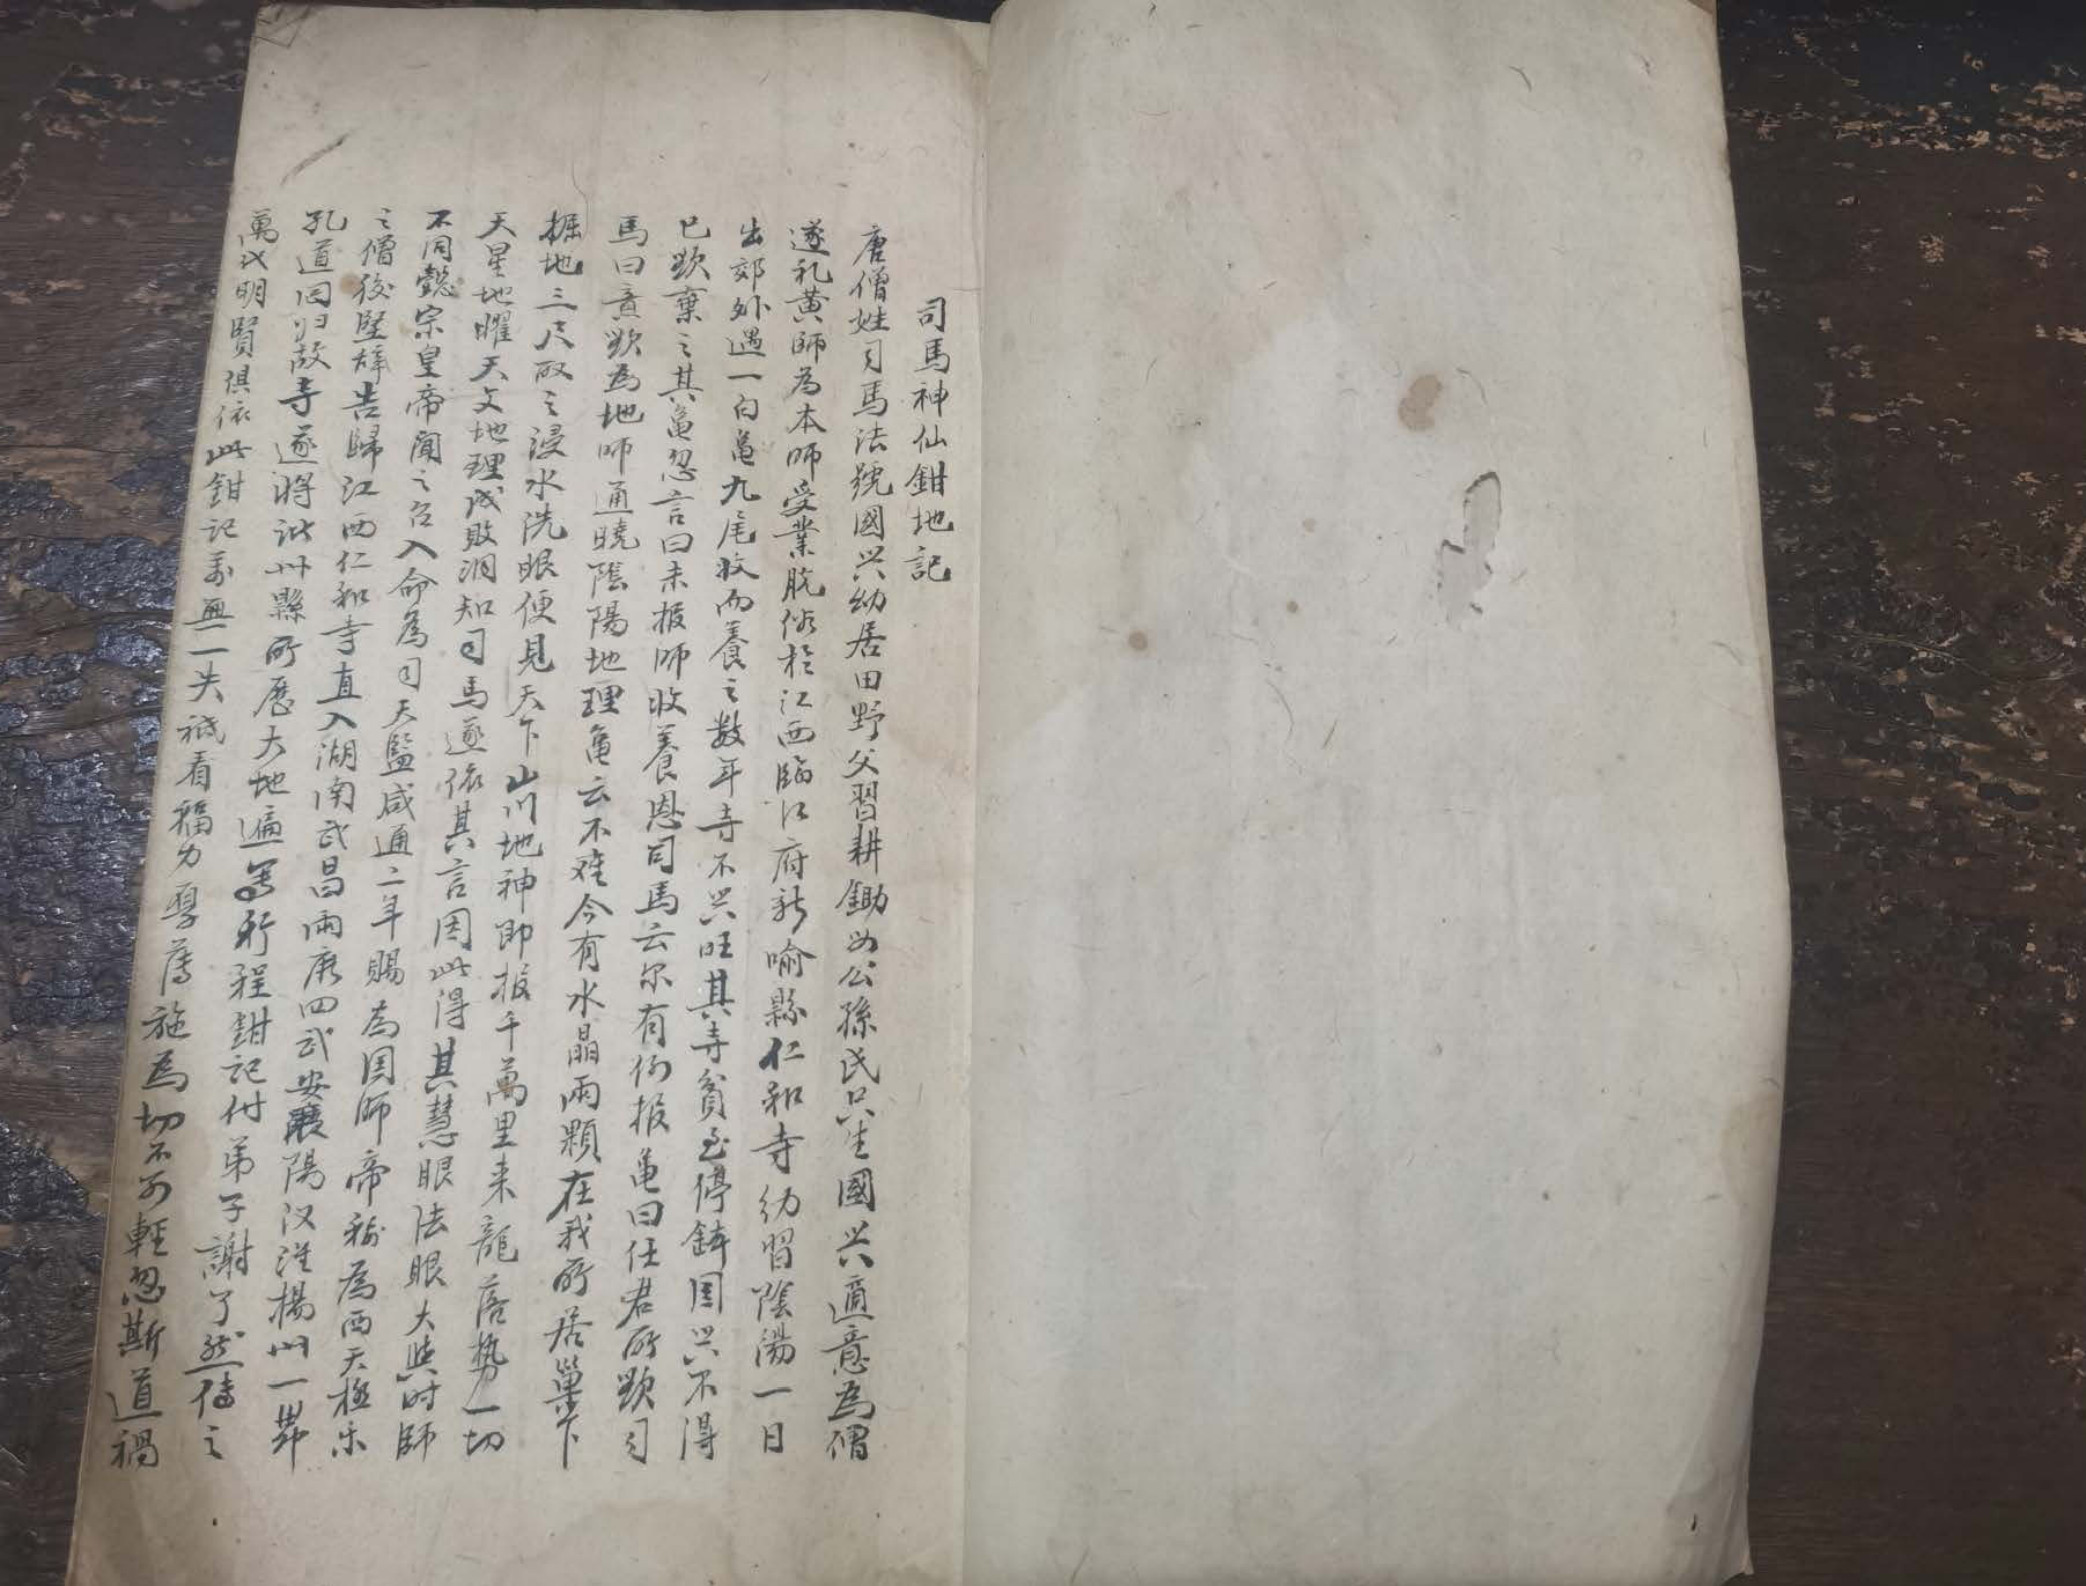 司馬神仙鉗地記
唐僧姓司馬法號國兴幼居田野父習耕鋤母公孫氏只生國兴適意為僧
遂礼黄師為本師受業脱俗於江西臨江府新喻縣仁和寺幼習陰陽一日
出郊外遇一白亀九尾收而養之数年寺不兴旺其寺貧乏停鉢国兴不得
已欲棄之其亀忽言曰未报師收養恩司馬云尔有何报亀曰任君所欲司
馬曰意欲為地師通曉陰陽地理亀云不难今有水晶兩顆在我所居巢下
掘地三尺取之浸水洗眼便見天下山川地神即报千萬里来龍落势一切
天星地曜天文地理成敗洞知司馬遂依其言因此得其慧眼法眼大與时師
不同懿宗皇帝闻之召入命為司天監咸通二年賜為国師帝称為西天極乐
之僧後堅辞告歸江西仁和寺直入湖南武昌兩广四武安襄陽汉淮楊州一带
孔道回归故寺遂将此州縣所歷大地遍寫行程鉗記付弟子謝了然传之
萬代明賢俱依此鉗記萬無一失祗看福力厚薄施為切不可輕忽斯道禍